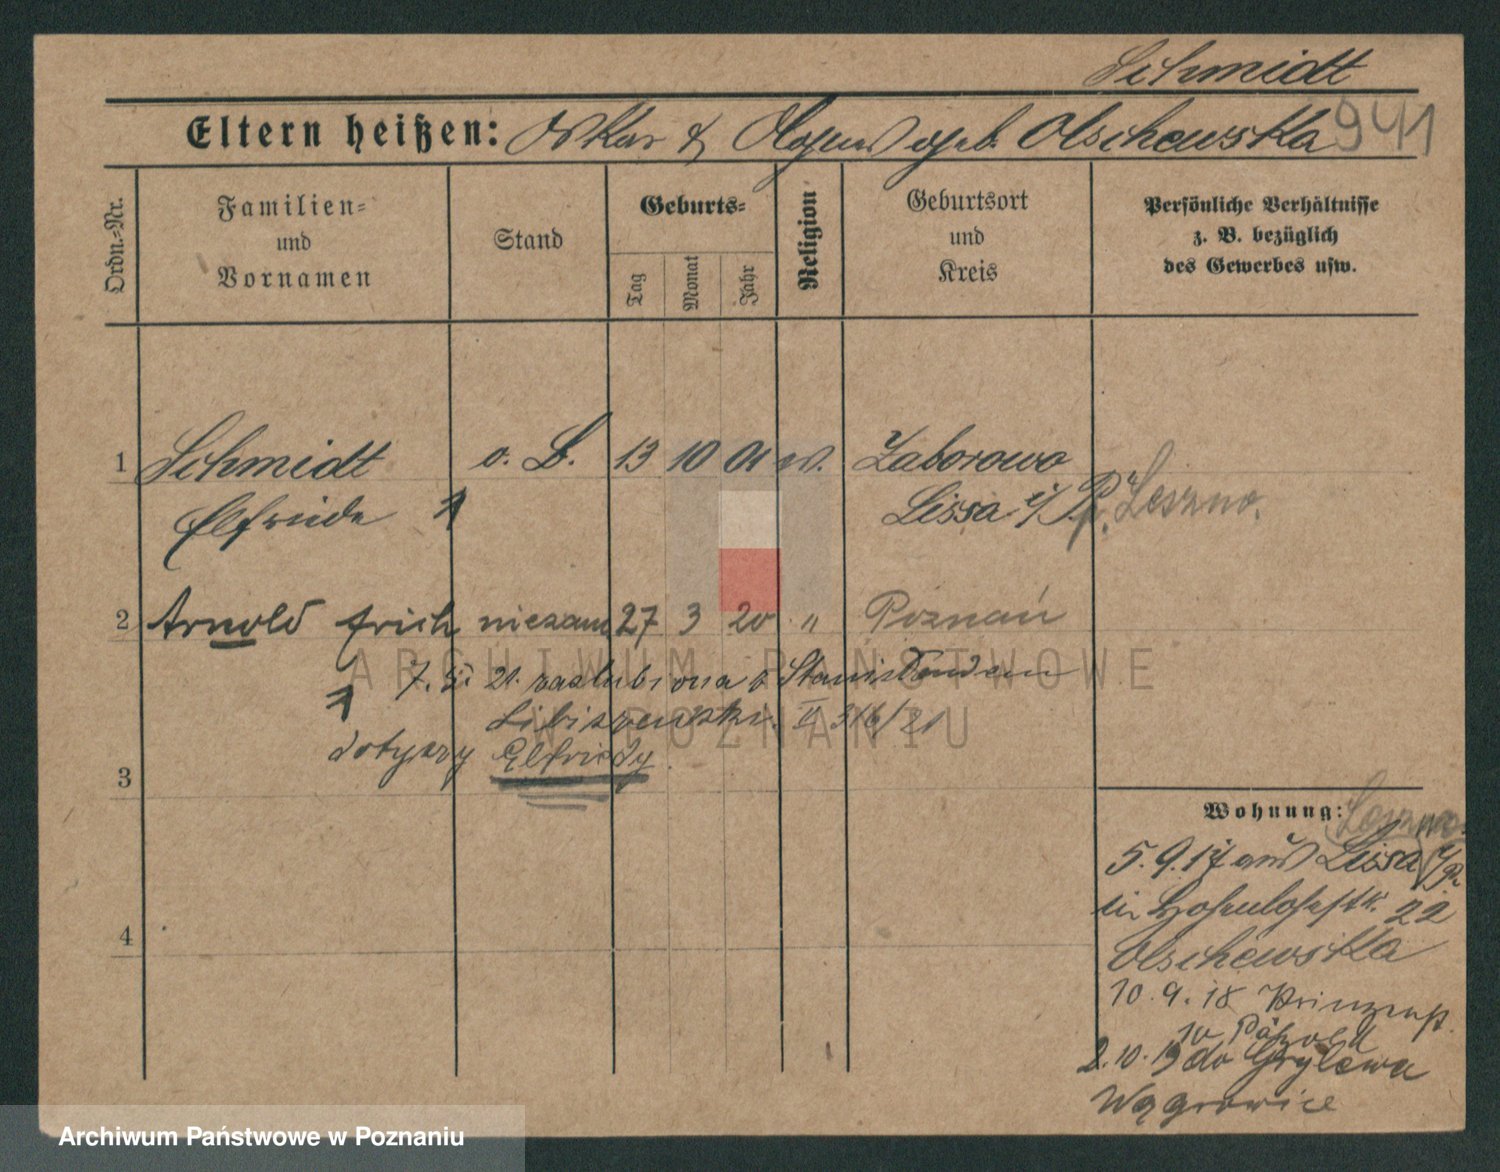 Schmidt
Eltern heißen: Oskar & geb. Olschewska 941
Ordn.-Nr.
Familien-
und
Vornamen
Stand
Geburts-
Tag
Monat
Jahr
Religion
Geburtsort
und
Kreis
Persönliche Verhältnisse
z. B. bezüglich
des Gewerbes usw.
1 Schmidt o. B. 13 10 01 w. Zaborowo
Elfriede Lissa i/P. Leszno.
2 Arnold Erich niezam 27 3 20 " Poznań
ARCHIWUM PAŃSTWOWE
W POZNANIU
7. 5. 21. zaślubiona Stanisław
II 316/21
dotyczy Elfriedy
3
4
Wohnung: Leszno
5.9.17 aus Lissa i/P.
in Hohenlohestr. 22
Olschewska
10.9.18 Prinzenst.
10 Pätzold
2.10.19 do Grylewa
Wągrowiec
Archiwum Państwowe w Poznaniu